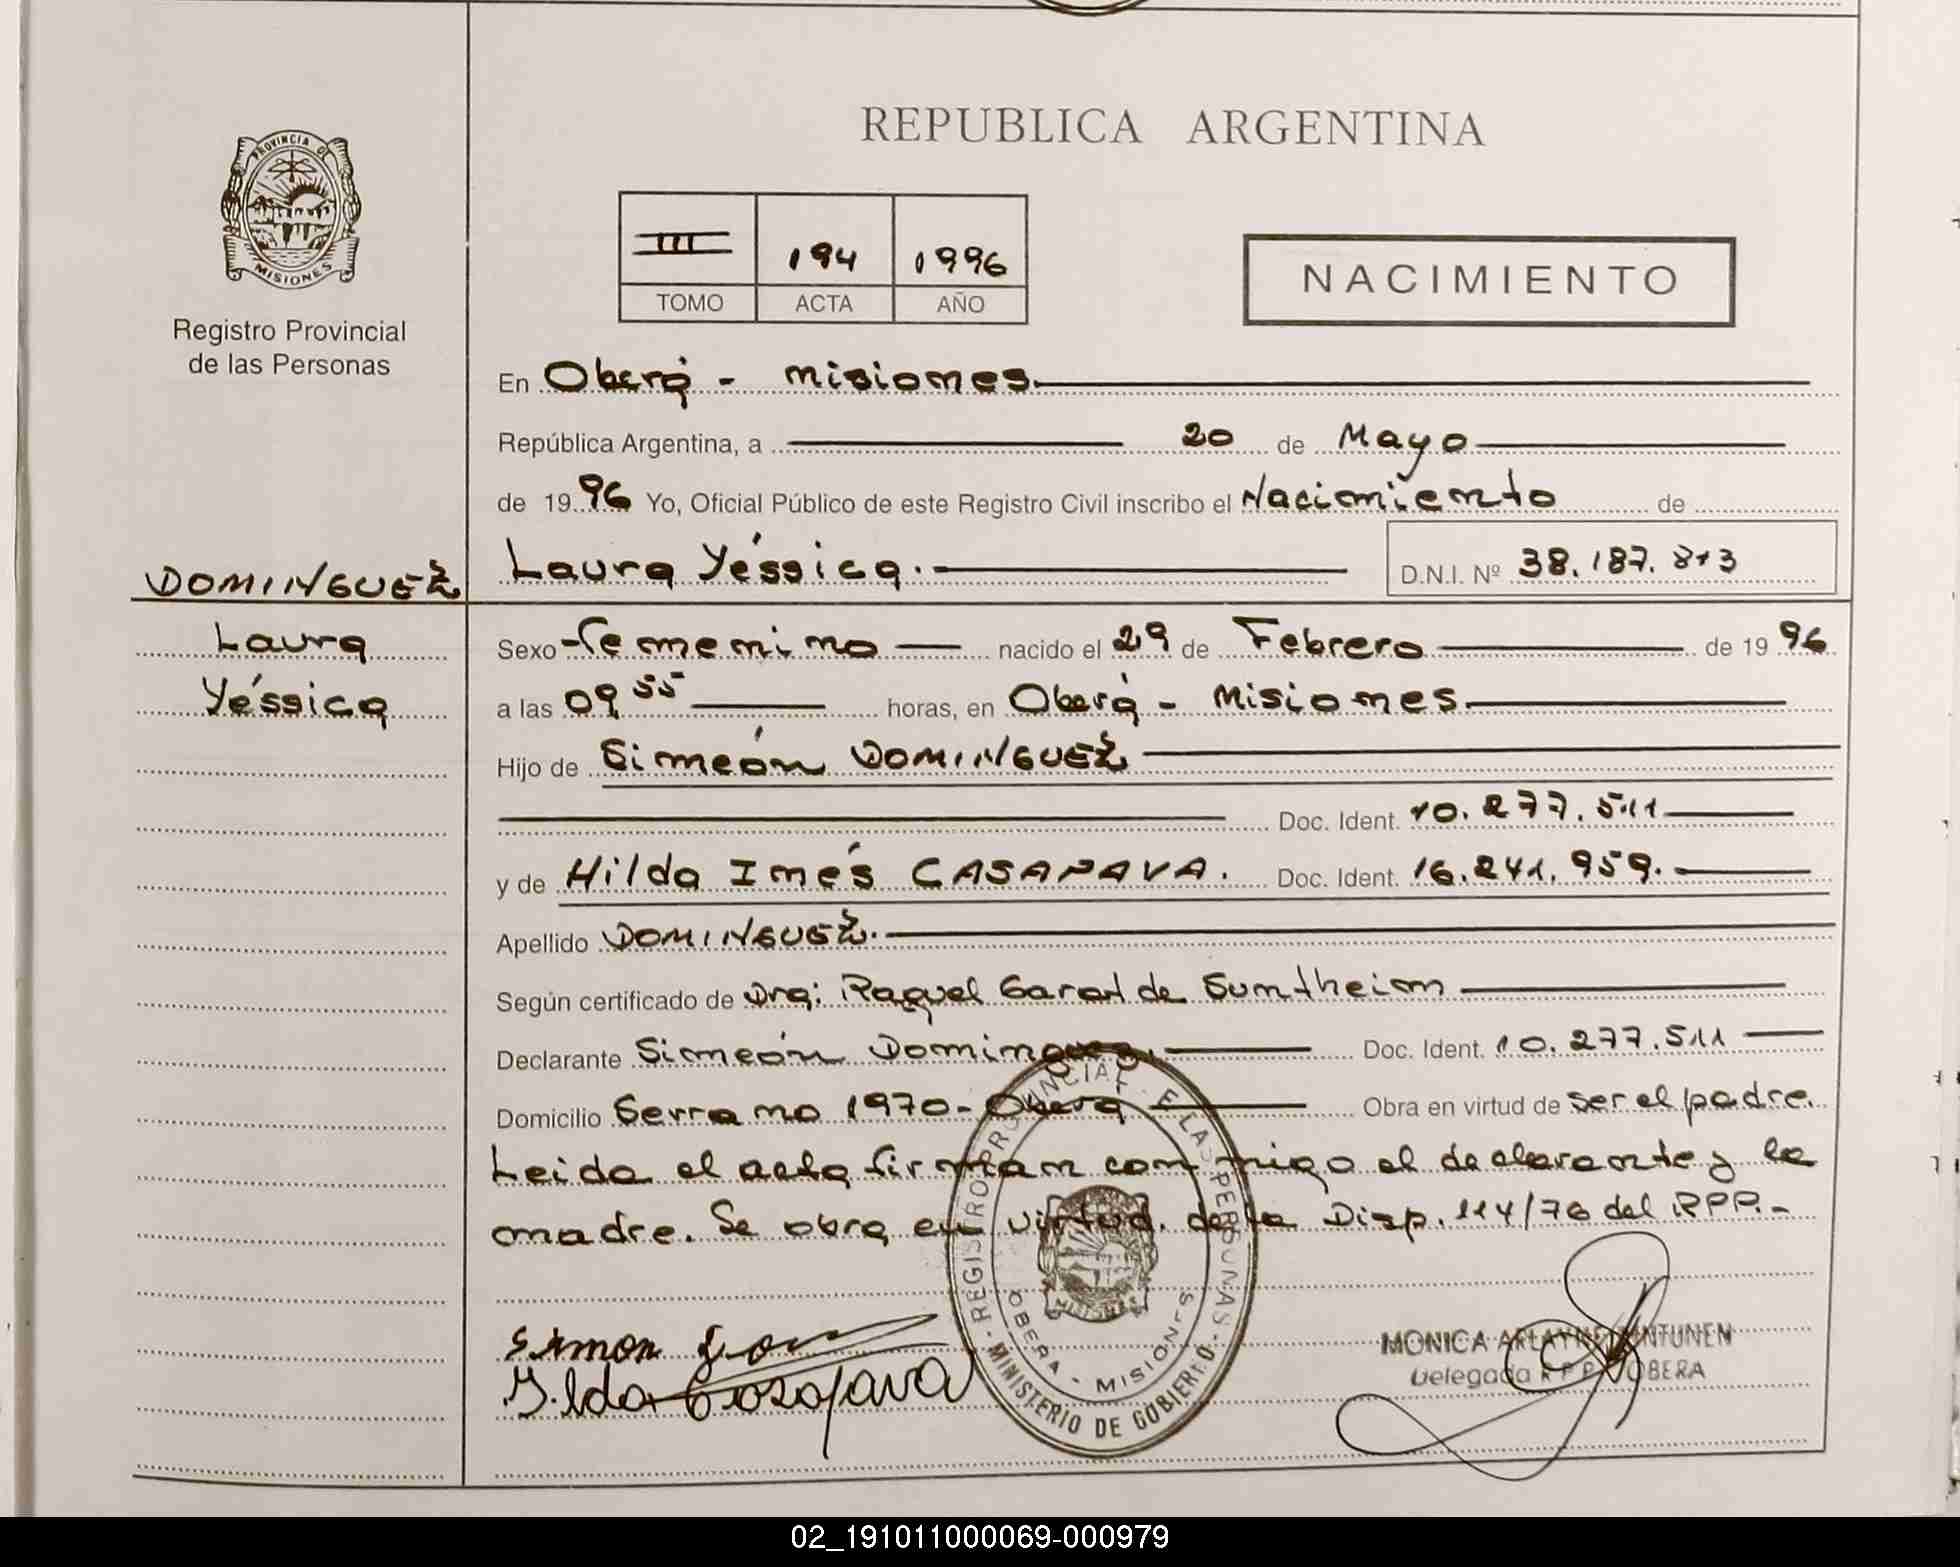 REPUBLICA ARGENTINA
PROVINCIA DE
MISIONES
Registro Provincial
de las Personas
III 194 1996
TOMO ACTA AÑO
NACIMIENTO
En Oberá - Misiones.
República Argentina, a 20 de Mayo
de 1996 Yo, Oficial Público de este Registro Civil inscribo el Nacimiento de
Laura Yéssica. D.N.I. Nº 38.187.873
DOMINGUEZ
Laura
Yéssica
Sexo Femenino nacido el 29 de Febrero de 1996
a las 09 55 horas, en Oberá - Misiones
Hijo de Simeón DOMINGUEZ
Doc. Ident. 10.277.511
y de Hilda Inés CASAPAVA. Doc. Ident. 16.241.959.
Apellido DOMINGUEZ.
Según certificado de Dra: Raquel Garat de Suntheim
Declarante Simeón Dominguez. Doc. Ident. 10.277.511
Domicilio Serrano 1970 - Oberá Obra en virtud de ser el padre.
Leida el acta firman conmigo el declarante y la
madre. Se obra en virtud de la Disp. 114/76 del RPP.-
REGISTRO PROVINCIAL DE LAS PERSONAS
OBERA - MISIONES
MINISTERIO DE GOBIERNO
Simon
Ilda Casapava
MONICA
Delegada R P P OBERA
02_191011000069-000979